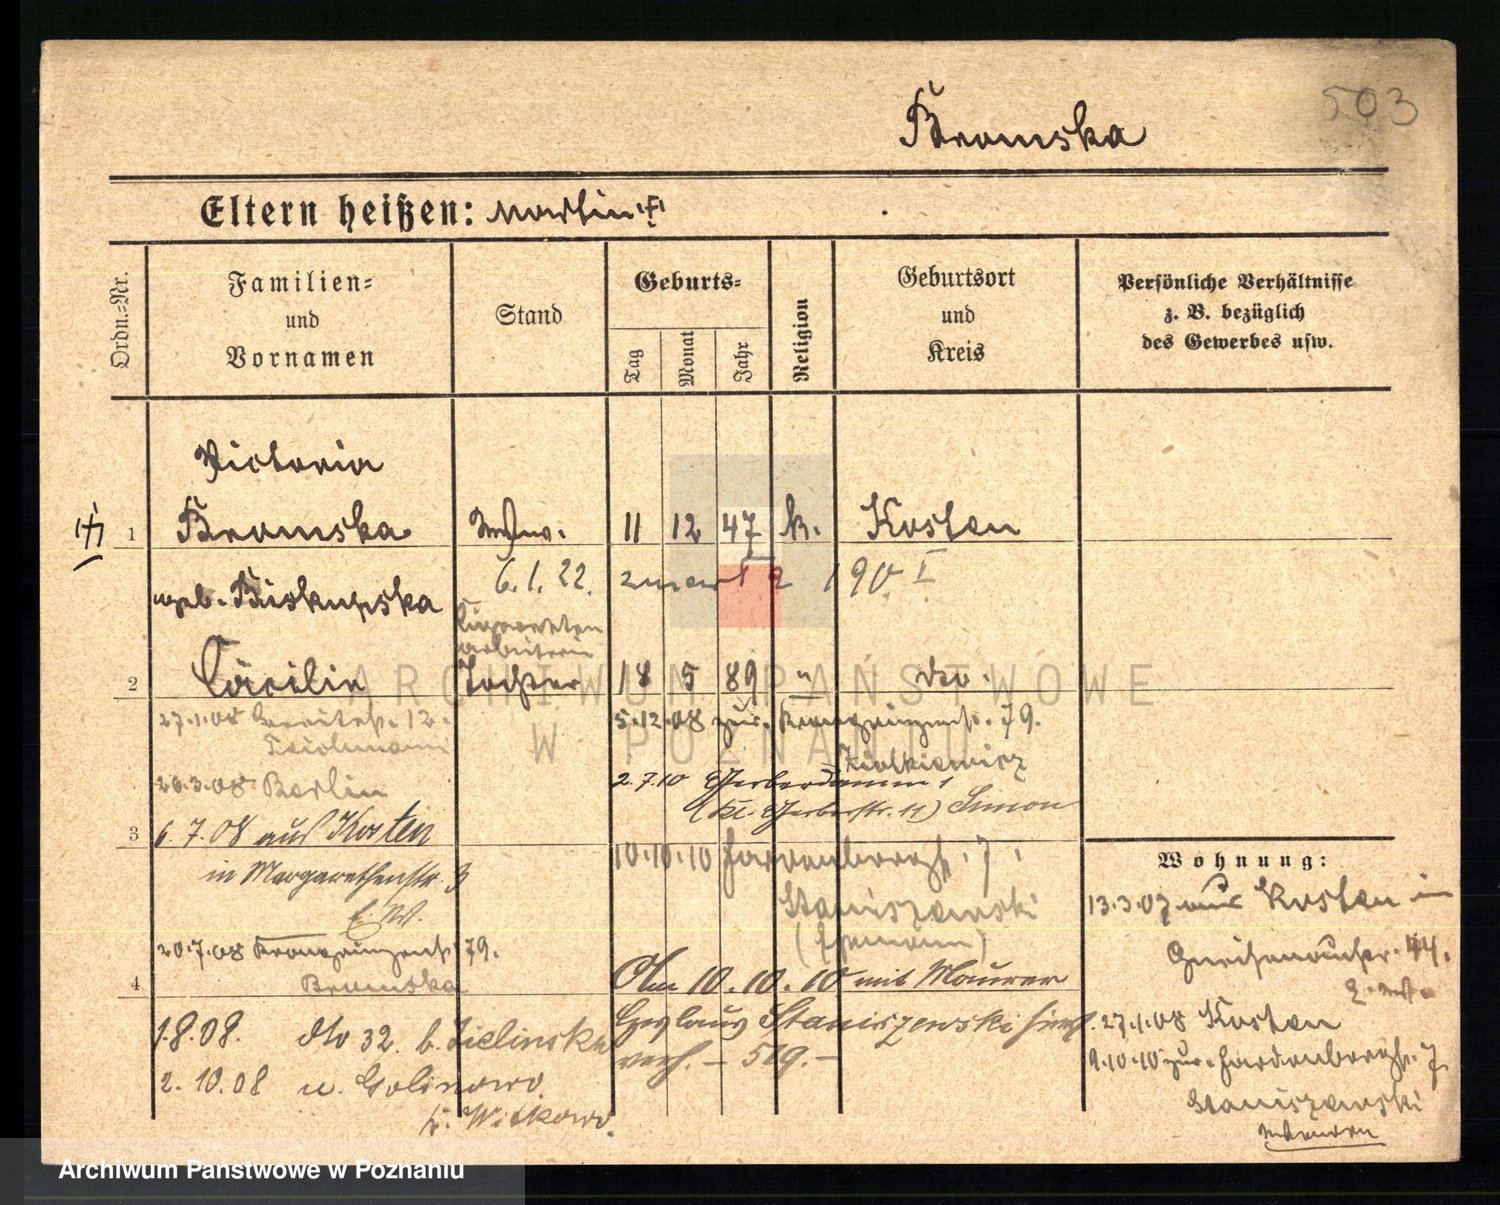 503
Bromska
Eltern heißen: Martin
Ordn.-Nr.
Familien-
und
Vornamen
Stand
Geburts-
Tag
Monat
Jahr
Religion
Geburtsort
und
Kreis
Persönliche Verhältnisse
z. B. bezüglich
des Gewerbes usw.
Victoria
1 Bromska Wwe. 11 12 47 k. Kosten
6.1.22. 190
geb. Biskupska
Cigaretten
arbeiterin
2 Cäcilie Tochter 18 5 89 " do.
ARCHIWUM PAŃSTWOWE
W POZNANIU
27.1.08 12.
Teichmann
20.3.08 Berlin
3 6.7.08 aus Kosten
in Margarethenstr. 3
E.W.
20.7.08 Kronprinzenstr. 79.
4 Bromska
1.8.08. dto 32. b. Zielinska
2.10.08 n. Golinowo
Kr. Witkowo.
5.12.08 zur. Kronprinzenstr. 79.
Ziolkiewicz
2.7.10 Gerberdamm 1
(Kl. Gerberstr. 11) Simon
10.10.10 Hardenbergstr. 7.
Staniszewski
(Ehemann)
Am 10.10.10 mit Maurer
Staniszewski hier
verh. – 519. –
Wohnung:
13.3.07 aus Kosten in
Gneisenaustr. 44.
27.1.08 Kosten
9.10.10 zur. Hardenbergstr. 7
Staniszewski
Archiwum Państwowe w Poznaniu